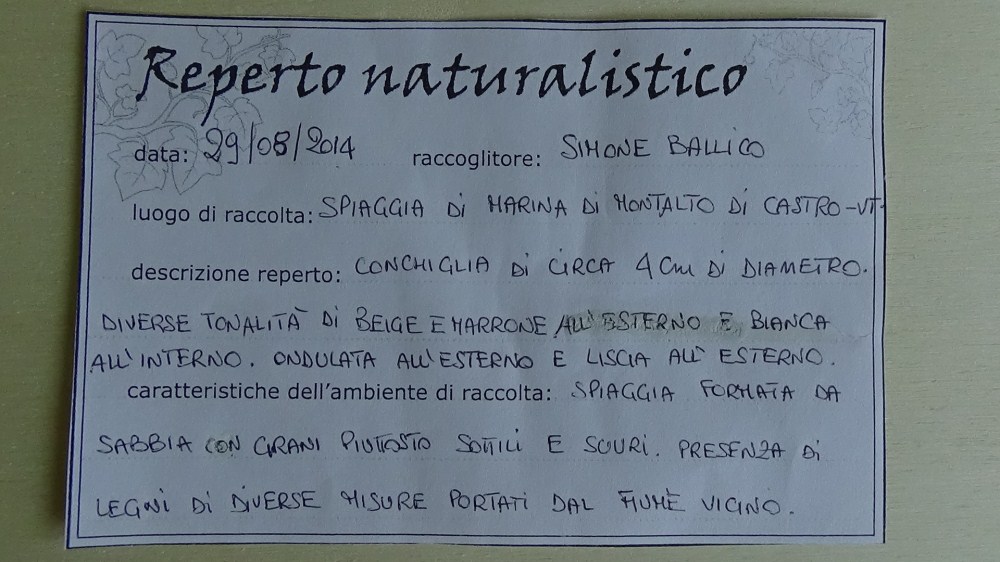 Reperto naturalistico
data: 29/08/2014 raccoglitore: SIMONE BALLICO
luogo di raccolta: SPIAGGIA di MARINA Di MONTALTO Di CASTRO-VT-
descrizione reperto: CONCHIGLIA di CIRCA 4 cm Di DIAMETRO.
DIVERSE TONALITÀ Di BEIGE E MARRONE ALL'ESTERNO E BIANCA
ALL'INTERNO. ONDULATA ALL'ESTERNO E LISCIA ALL' ESTERNO.
caratteristiche dell'ambiente di raccolta: SPIAGGIA FORMATA DA
SABBIA CON GRANI PIUTTOSTO SOTTILI E SCURI. PRESENZA Di
LEGNI Di DIVERSE MISURE PORTATI DAL FIUME VICINO.